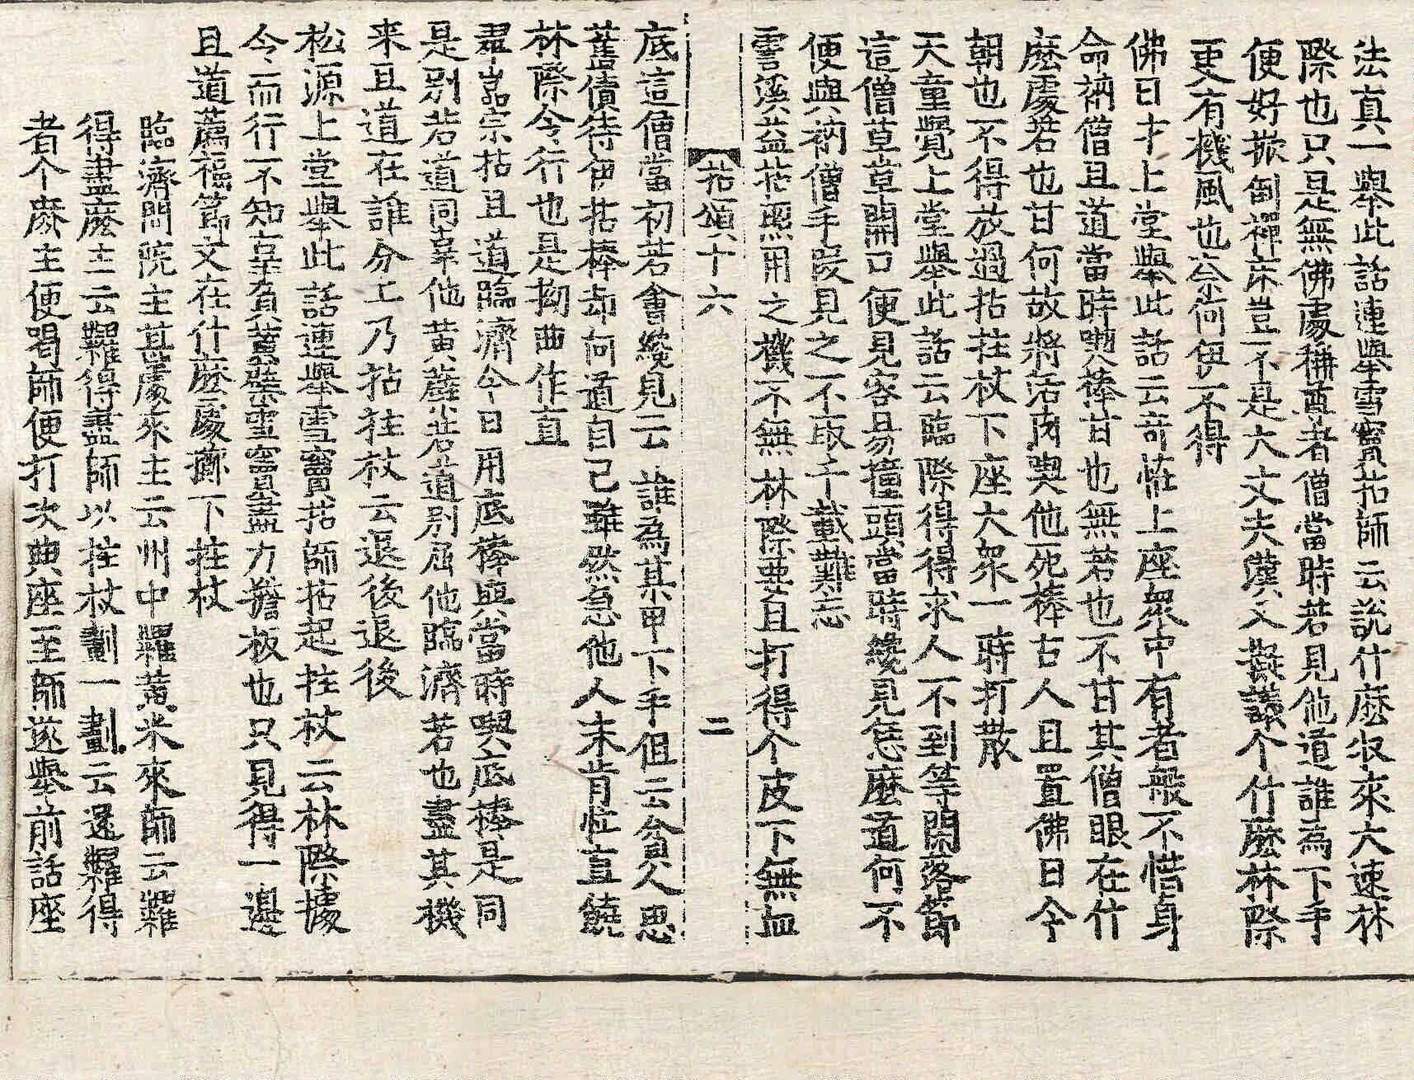 法真一舉此話連舉雪竇拈師云說什麽収來大速林
際也只是無佛處稱尊者僧當時若見他道誰為下手
便好掀倒禪床豈不是大丈夫漢又擬議个什麽林際
更有機風也奈何伊不得
佛日才上堂舉此話云奇恠上座衆中有者般不惜身
命衲僧且道當時喫棒甘也無若也不甘其僧眼在什
麽處若也甘何故將活肉喫他死棒古人且置佛日今
朝也不得放過拈拄杖下座大衆一時打散
天童覺上堂舉此話云臨際得得求人不到等閑落節
這僧草草開口便見容昜撞頭當時纔見恁麽道何不
便與衲僧手段見之不取千載難忘
雲溪益拈照用之機不無林際要且打得个皮下無血
拈頌十六 二
底這僧當初若會纔見云誰為某甲下手但云貧人思
舊債待伊拈棒却向道自己雖然急他人未肯忙豈饒
林際令行也是拗曲作直
翠嵓宗拈且道臨濟今日用底棒與當時喫底棒是同
是別若道同辜他黄蘗若道別屈他臨濟若也盡其機
来且道在誰分上乃拈拄杖云退後退後
松源上堂舉此話連舉雪竇拈師拈起拄杖云林際據
令而行不知辜負黄蘗雪竇盡力擔板也只見得一邊
且道薦福節文在什麽處擲下拄杖
臨濟問院主甚處來主云州中糶黄米來師云糶
得盡麽主云糶得盡師以拄杖劃一劃云還糶得
者个麽主便喝師便打次典座至師遂舉前話座